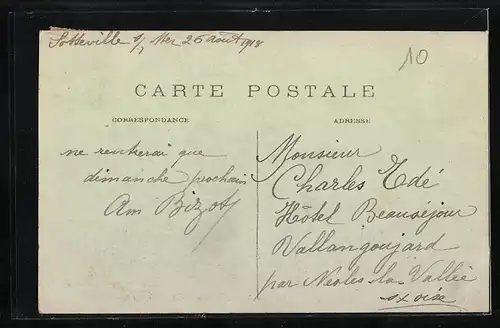 Sotteville s/ Mer 26 août 1918
10
CARTE POSTALE
CORRESPONDANCE
ADRESSE
ne rentrerai que
dimanche prochain
Am Bizot
Monsieur
Charles Edé
Hôtel Beauséjour
Vallangoujard
par Nesles la Vallée
S et oise